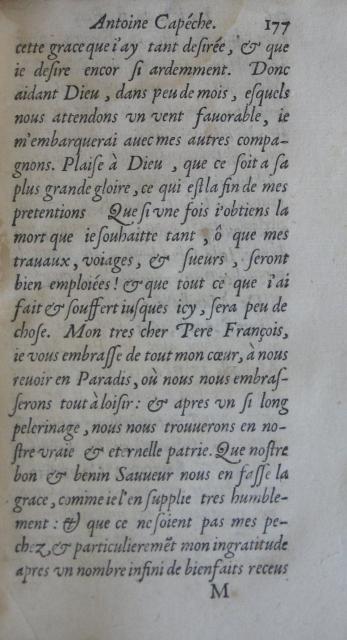 Antoine Capéche. 177
cette grace que i'ay tant desirée, & que
ie desire encor si ardemment. Donc
aidant Dieu, dans peu de mois, esquels
nous attendons vn vent fauorable, ie
m'embarquerai auec mes autres compa-
gnons. Plaise à Dieu, que ce soit a sa
plus grande gloire, ce qui est la fin de mes
pretentions Que si vne fois i'obtiens la
mort que ie souhaitte tant, ô que mes
trauaux, voiages, & sueurs, seront
bien emploiées! & que tout ce que i'ai
fait & souffert iusques icy, sera peu de
chose. Mon tres cher Pere François,
ie vous embrasse de tout mon cœur, à nous
reuoir en Paradis, où nous nous embras-
serons tout à loisir: & apres vn si long
pelerinage, nous nous trouuerons en no-
stre vraie & eternelle patrie. Que nostre
bon & benin Sauueur nous en fasse la
grace, comme ie l'en supplie tres humble-
ment: & que ce ne soient pas mes pe-
chez, & particulieremēt mon ingratitude
apres vn nombre infini de bienfaits receus
M